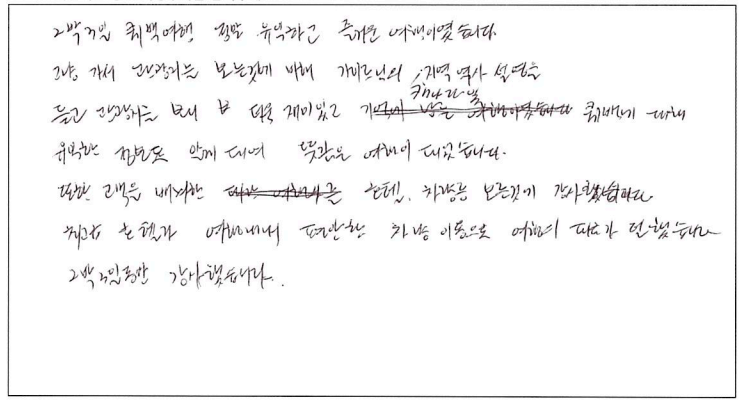 2박3일 퀘백여행 정말 유익하고 즐거운 여행이였습니다.
그냥 가서 관광지를 보는것에 비해 가이드님의 지역 역사 설명을
캐나다 및
듣고 관광지를 보니 더욱 재미있고 퀘백에 대해
유익한 정보도 알게 되어 뜻깊은 여행이 되었습니다.
또한 고객을 배려한 호텔, 차량등 모든것이 감사했습니다.
호텔과 여행내내 편안한 차량 이동으로 여행의 피로가 덜했습니다
2박3일동안 감사했습니다.